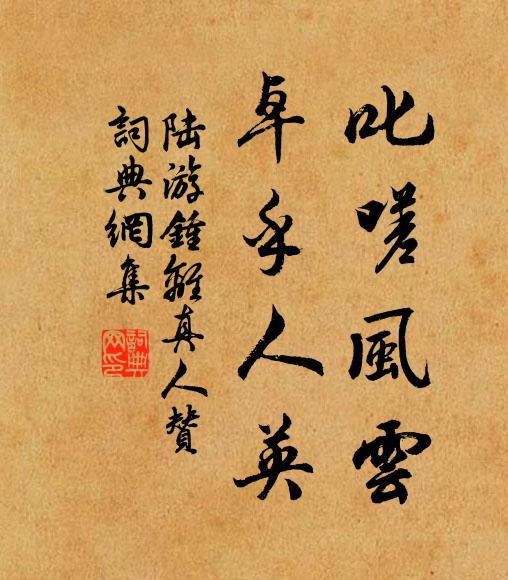 叱嗟風雲
卓乎人英
陸游鍾離真人贊
詞典網集
詞典網印